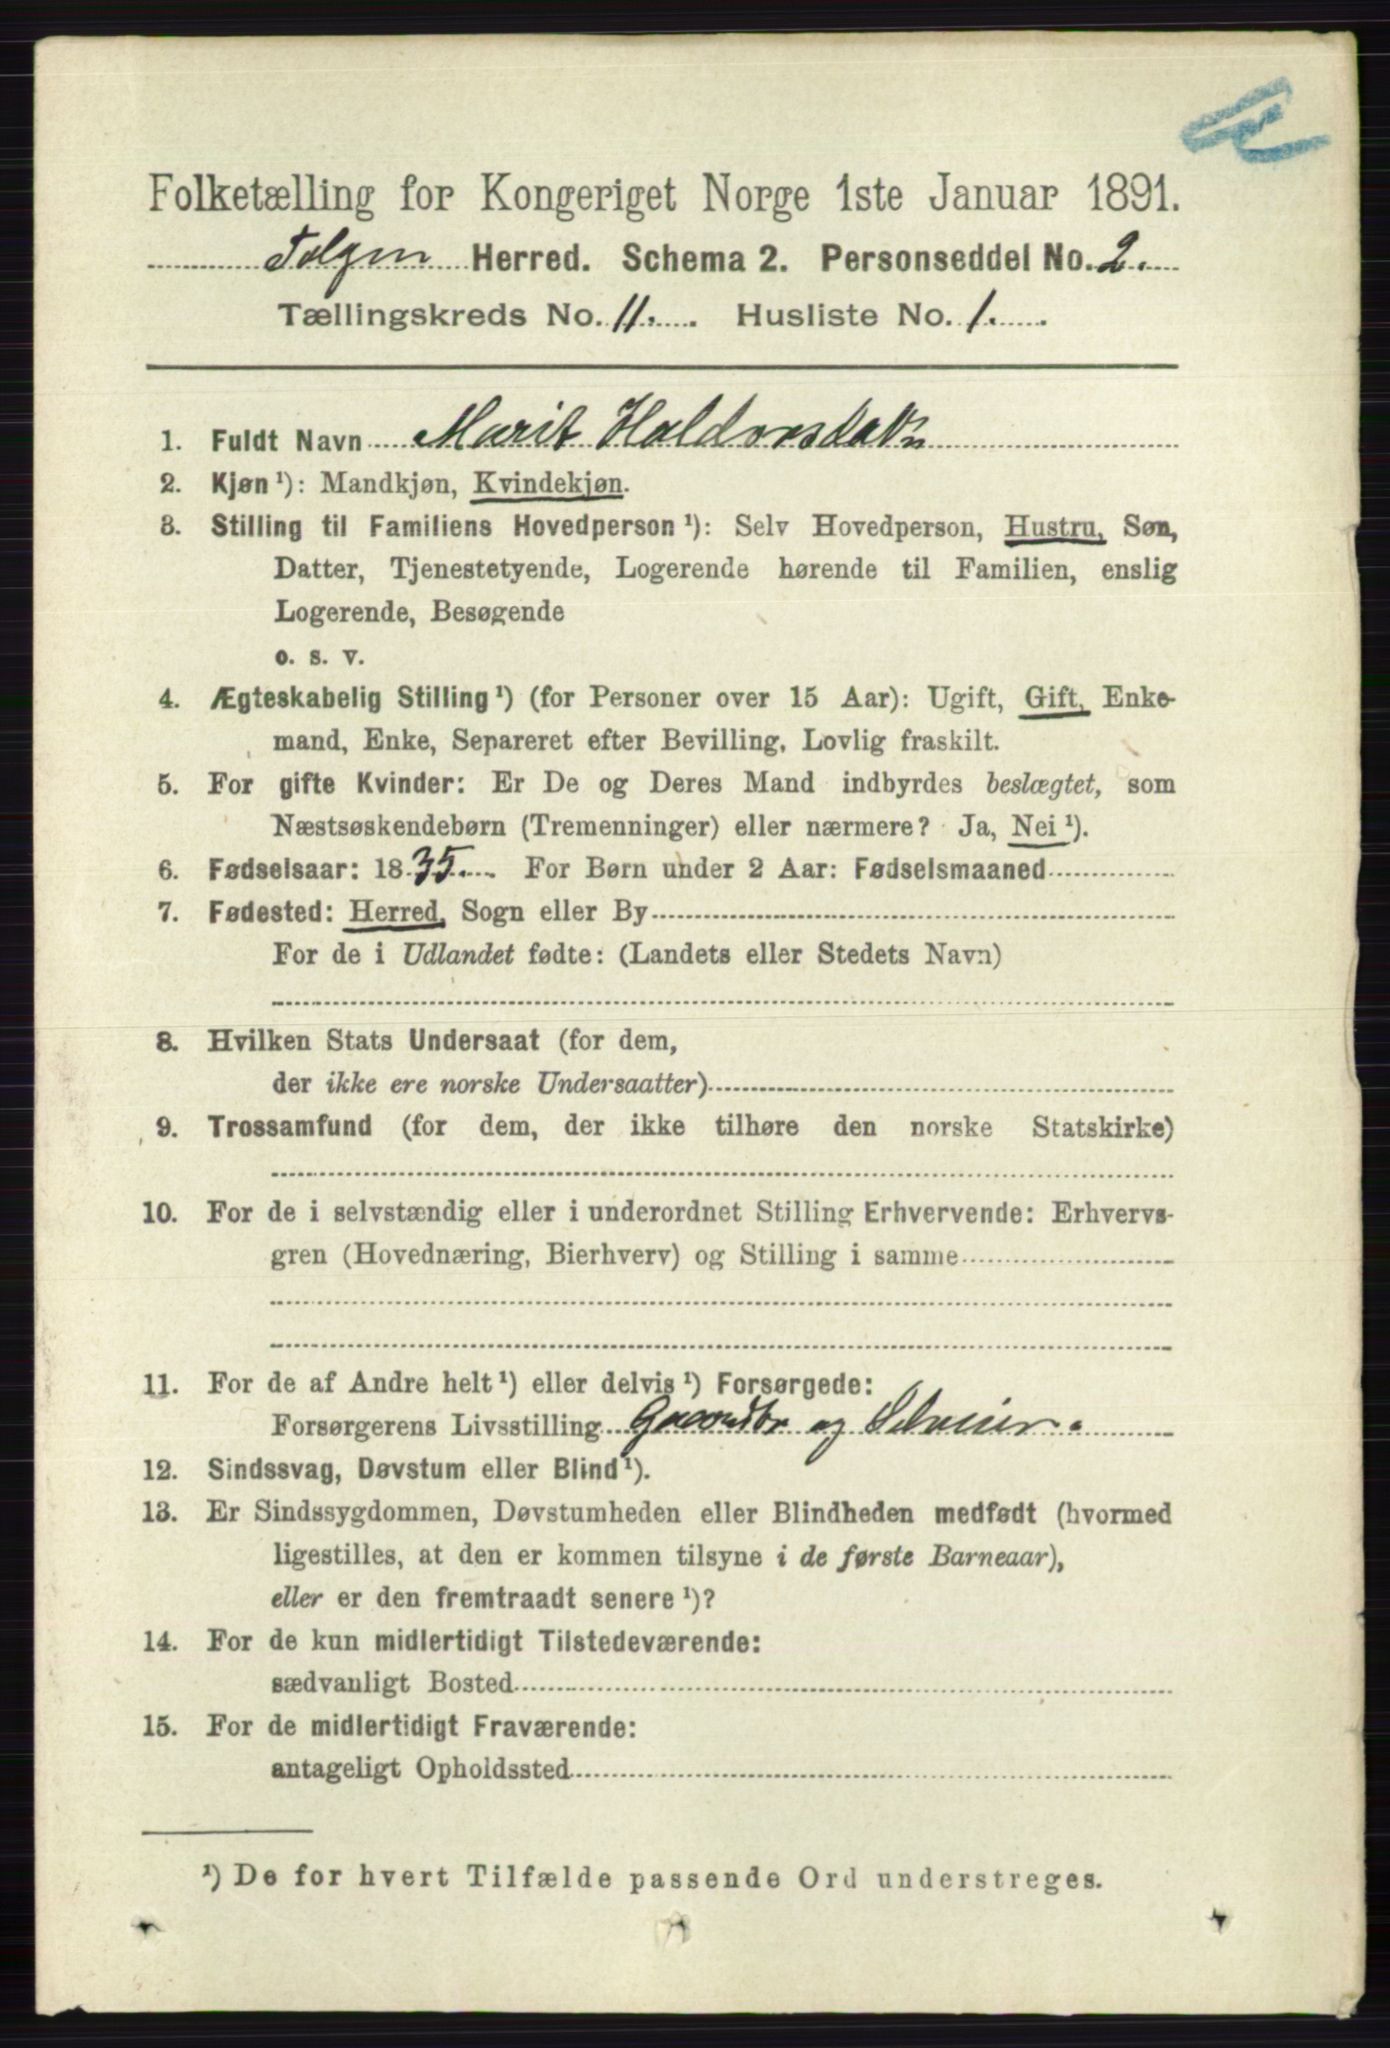 Folketælling for Kongeriget Norge 1ste Januar 1891.
Tolgen Herred. Schema 2. Personseddel No. 2.
Tællingskreds No. 11. Husliste No. 1.
1. Fuldt Navn Marit Haldorsdatr
2. Kjøn ¹): Mandkjøn, Kvindekjøn.
3. Stilling til Familiens Hovedperson ¹): Selv Hovedperson, Hustru, Søn,
Datter, Tjenestetyende, Logerende hørende til Familien, enslig
Logerende, Besøgende
o. s. v.
4. Ægteskabelig Stilling ¹) (for Personer over 15 Aar): Ugift, Gift, Enke-
mand, Enke, Separeret efter Bevilling, Lovlig fraskilt.
5. For gifte Kvinder: Er De og Deres Mand indbyrdes beslægtet, som
Næstsøskendebørn (Tremenninger) eller nærmere? Ja, Nei ¹).
6. Fødselsaar: 1835. For Børn under 2 Aar: Fødselsmaaned
7. Fødested: Herred, Sogn eller By
For de i Udlandet fødte: (Landets eller Stedets Navn)
8. Hvilken Stats Undersaat (for dem,
der ikke ere norske Undersaatter)
9. Trossamfund (for dem, der ikke tilhøre den norske Statskirke)
10. For de i selvstændig eller i underordnet Stilling Erhvervende: Erhvervs-
gren (Hovednæring, Bierhverv) og Stilling i samme
11. For de af Andre helt ¹) eller delvis ¹) Forsørgede:
Forsørgerens Livsstilling Gaardbr og Selveier.
12. Sindssvag, Døvstum eller Blind ¹).
13. Er Sindssygdommen, Døvstumheden eller Blindheden medfødt (hvormed
ligestilles, at den er kommen tilsyne i de første Barneaar),
eller er den fremtraadt senere ¹)?
14. For de kun midlertidigt Tilstedeværende:
sædvanligt Bosted
15. For de midlertidigt Fraværende:
antageligt Opholdssted
¹) De for hvert Tilfælde passende Ord understreges.